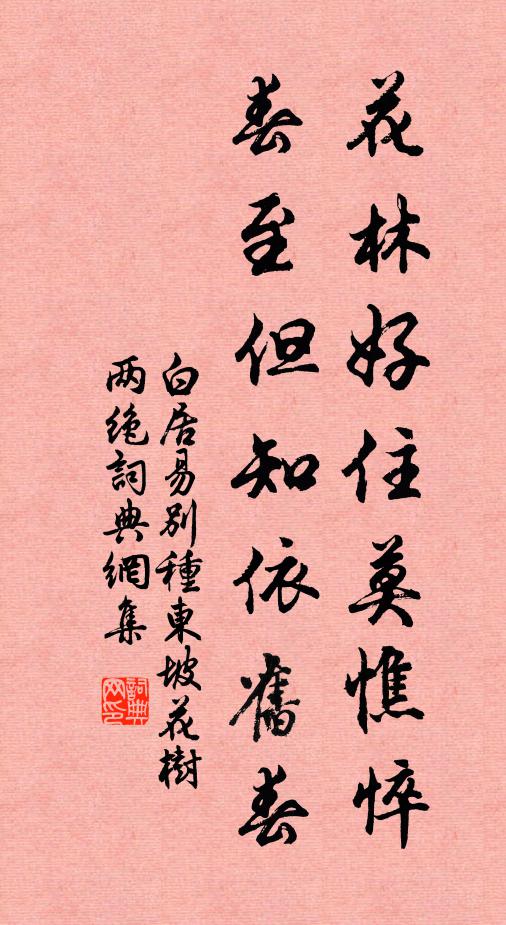 花林好住莫憔悴
春至但知依舊春
白居易別種東坡花樹
两绝詞典網集
詞典
网印